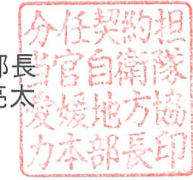 部長
亮太
分任契約担
当官自衛隊
愛媛地方協
力本部長印